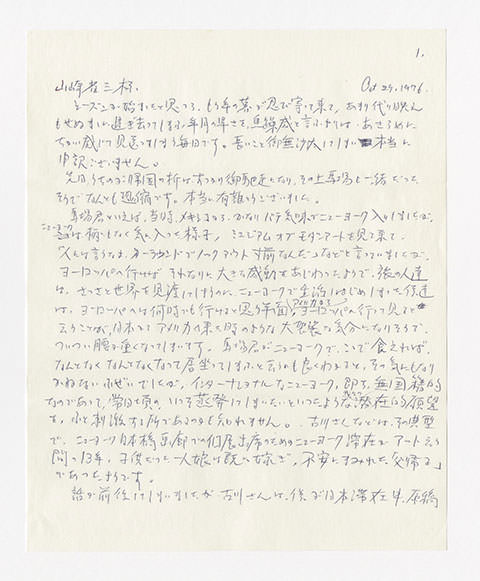 1.
山崎省三様、 Oct 29, 1976.
シーズンが始まったと思ってる、もう年の暮が忍び寄って来て、あまり代り映え
もせぬままに過ぎ去ってしまう年月の早さを、焦燥感と言うよりは、あきらめに
ちかい感じで見送ってしまう毎日です。長いこと御無沙汰してしまい 本当に
申訳ございません。
先日うちのが帰国の折はすっかり御馳走になり、その上馬場も一緒だった
そうでなんとも恐縮です。本当に有難うございました。
馬場君といえば、当時、メキシコから、かなりバテ気味でニューヨーク入りしましたが、
ここは柄にもなく気に入った様子、ミュジアム オブ モダンアートを見て来て、
「 オーラウンドでノックアウト寸前なんだ」などと言っていましたが、
ヨーロッパへ行けば それなりに大きな感動をあじわったようで、後の人達
は、さっさと世界を見渡してしまうのに、ニューヨークで生活しはじめました僕達
は、ヨーロッパへは何時でも行けると思う半面、アメリカから ヨーロッパへ行って見ると
云うことが、日本から アメリカへ来た時のような 大袈裟な気分になりそうで、
ついつい腰が重くなってしまいます。馬場君がニューヨークで、ここで食えれば、
なんとなくなんとなくなって居坐ってしまうと云うのも良くわかると、その気にもなり
かねない ぶぜいでしたが、インターナショナルなニューヨーク、即ち、無国籍的
なのであって、常日頃の いっそ蒸発してしまいたいといったような 潜在的願望
を、ふと刺激する所があるのかも知れません。 古川さんなどは、その典型
で、ニューヨーク日本橋 のためのニューヨーク滞在が アートと云う
間に13年、子供だった一人娘は既に嫁ぎ、「不安にすみれた父帰る」
であったようです。
話が前後してしまいましたが 古川さんは、僕が日本滞在中、原稿